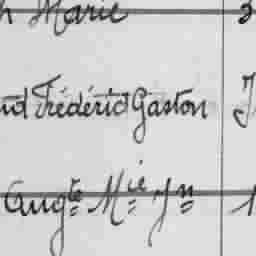 h Marie 3
nd Frédéric Gaston J
Augte Mie Jn 1